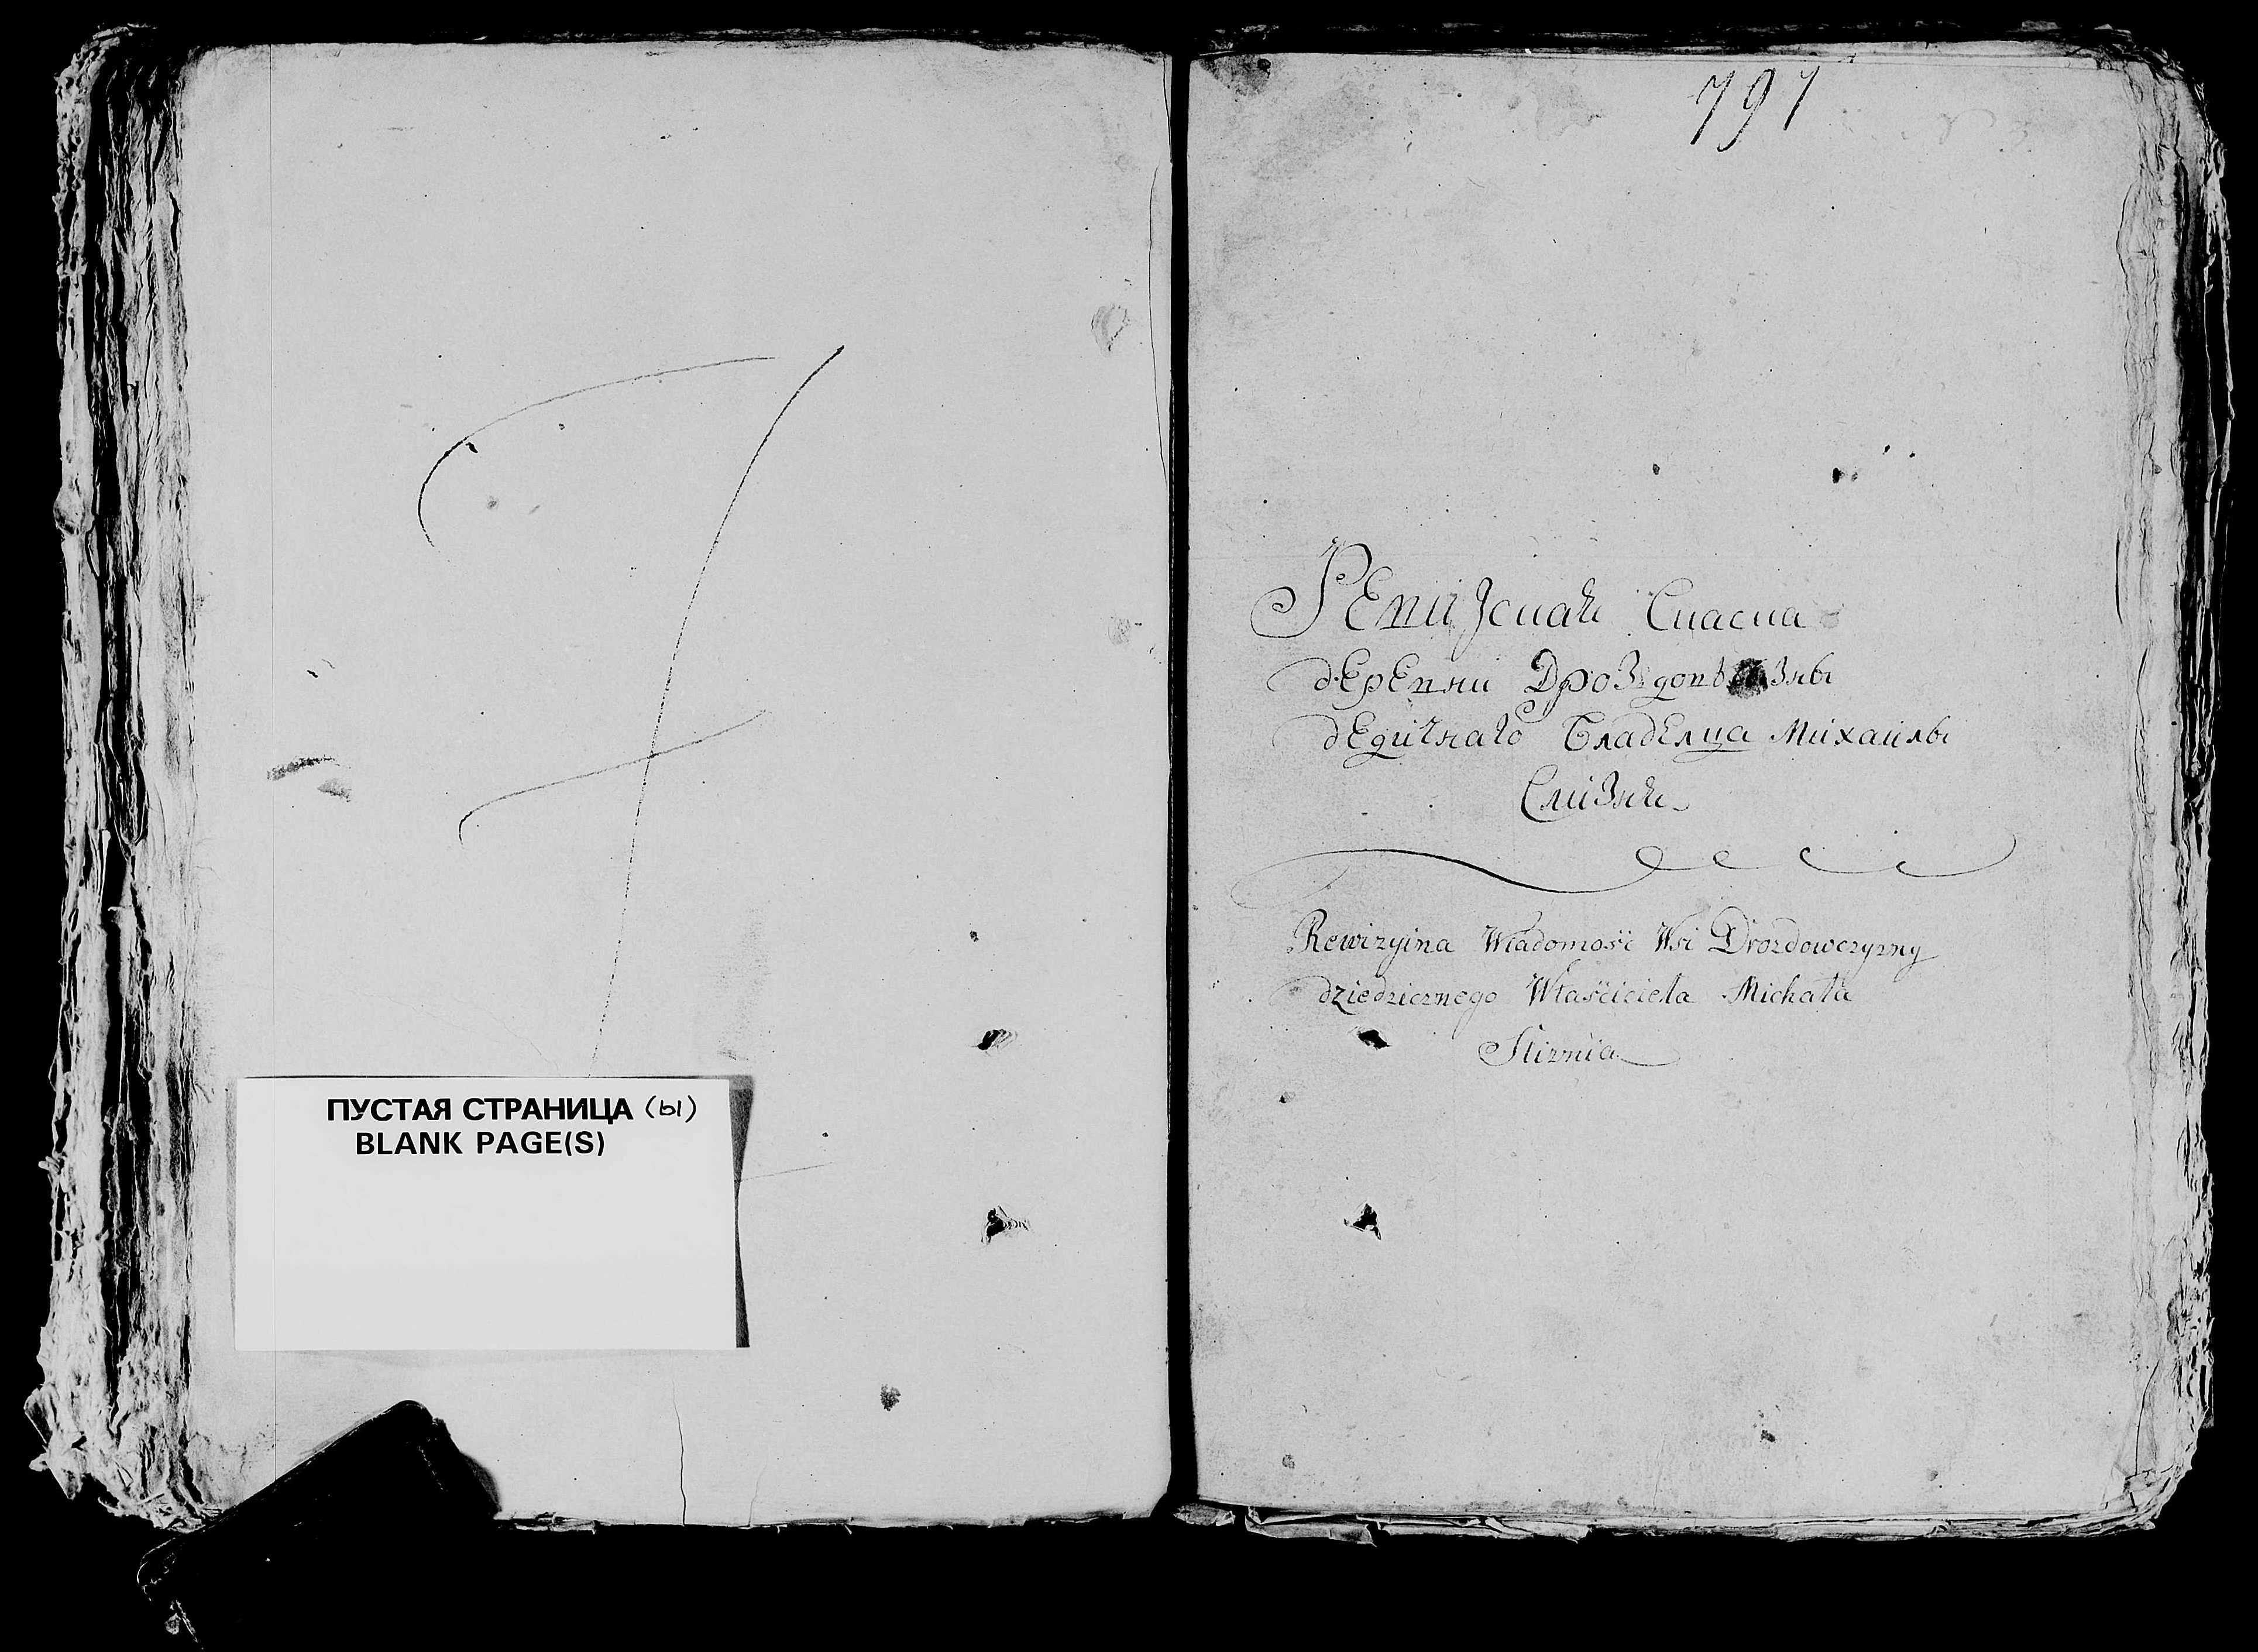 ПУСТАЯ СТРАНИЦА (ы)
BLANK PAGE(S)
797
деревни
дедичнаго Владелца Михаилы
Слизня
Rewizyina Wiadomość Wsi Drozdowczyzny
dziedzicznego Właściciela Michała
Sliznia